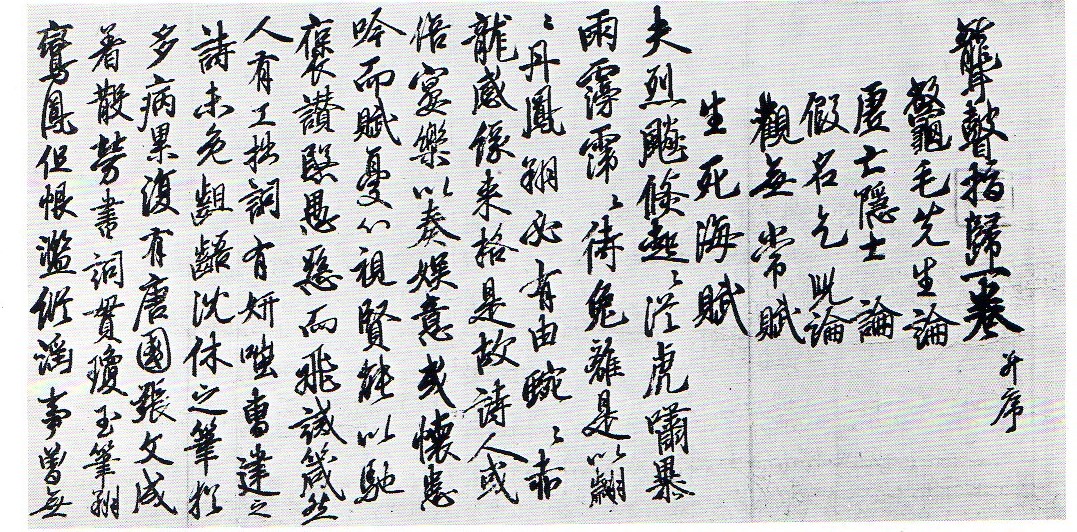 聾瞽指歸一卷 并序
龜毛先生論
虛亡隱士論
假名乞兒論
觀無常賦
生死海賦
夫烈飈倐起〻從虎嘯暴
雨霶霈〻待兔離是以翩
〻丹鳳翔必有由蜿〻赤
龍感緣来格是故詩人或
倍宴樂以奏娛意或懷患
吟而賦憂心視賢能以馳
褒讃愍愚惡而飛誡箴然
人有工拙詞有妍嗤曹建之
詩未免齟齬沈休之筆猶
多病累復有唐國張文成
著散勞書詞貫瓊玉筆翔
鸞鳳但恨濫縱淫事曾無